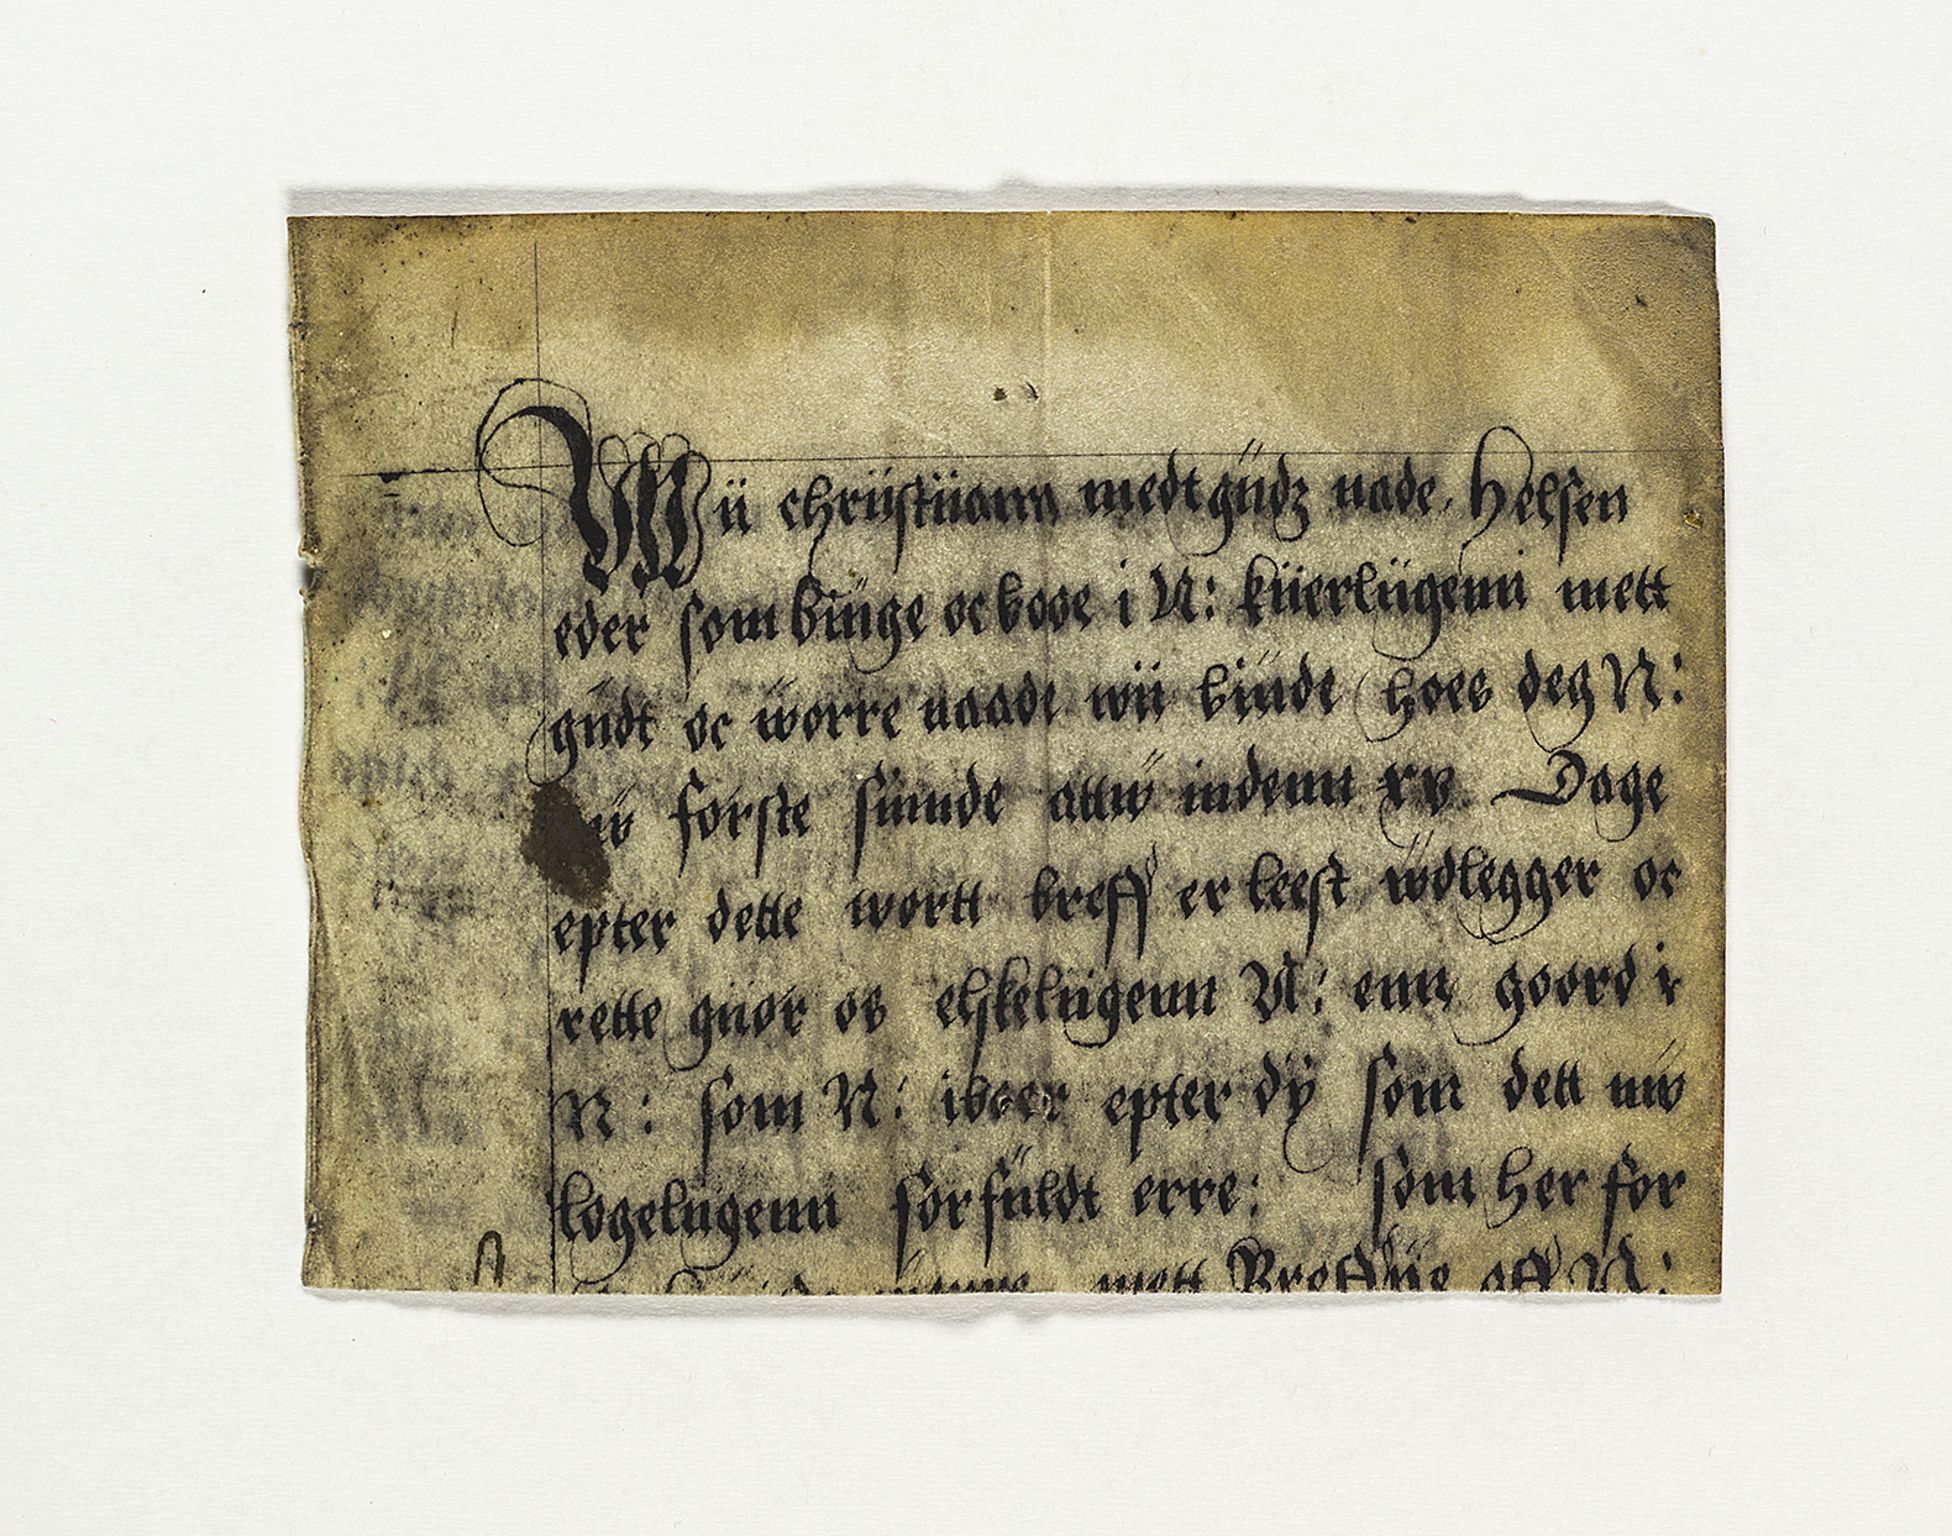 Wii chriistiiann medt güdz nade, Helsen
eder som büuge oc booe i N: kiierliigenn mett
güdt oc worre naade wii biude hoes deg N:
første siunde attw indenn xv Dage
epter dette wortt breff er leest wdlegger oc
rette giiør os elskeliigenn N: enn goord i
N: som N: iboer epter dÿ som dett nw
logeliigenn forfüldt erre: som her for
mett Breffüe aff N: